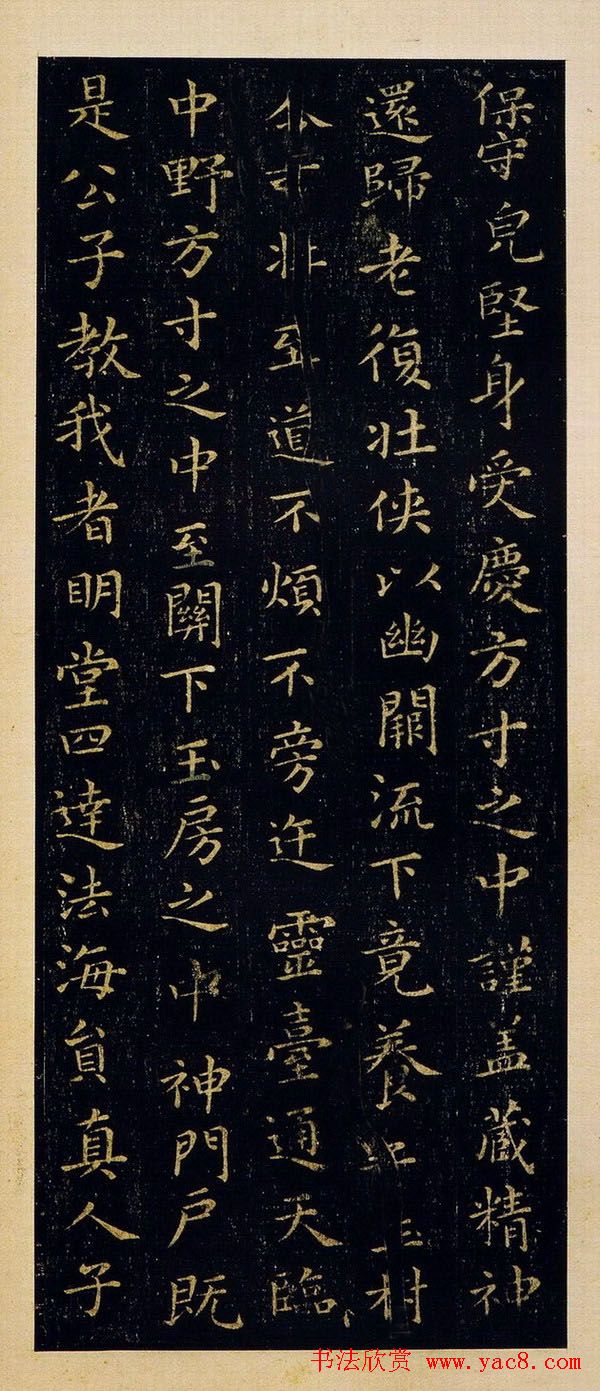 保守皃堅身受慶方寸之中謹盖藏精神
還歸老復壯俠以幽闕流下竟養 玉樹
 非至道不煩不旁迕靈臺通天臨
中野方寸之中至關下玉房之中神門戶既
是公子教我者明堂四達法海員真人子
书法欣赏 www.yac8.com